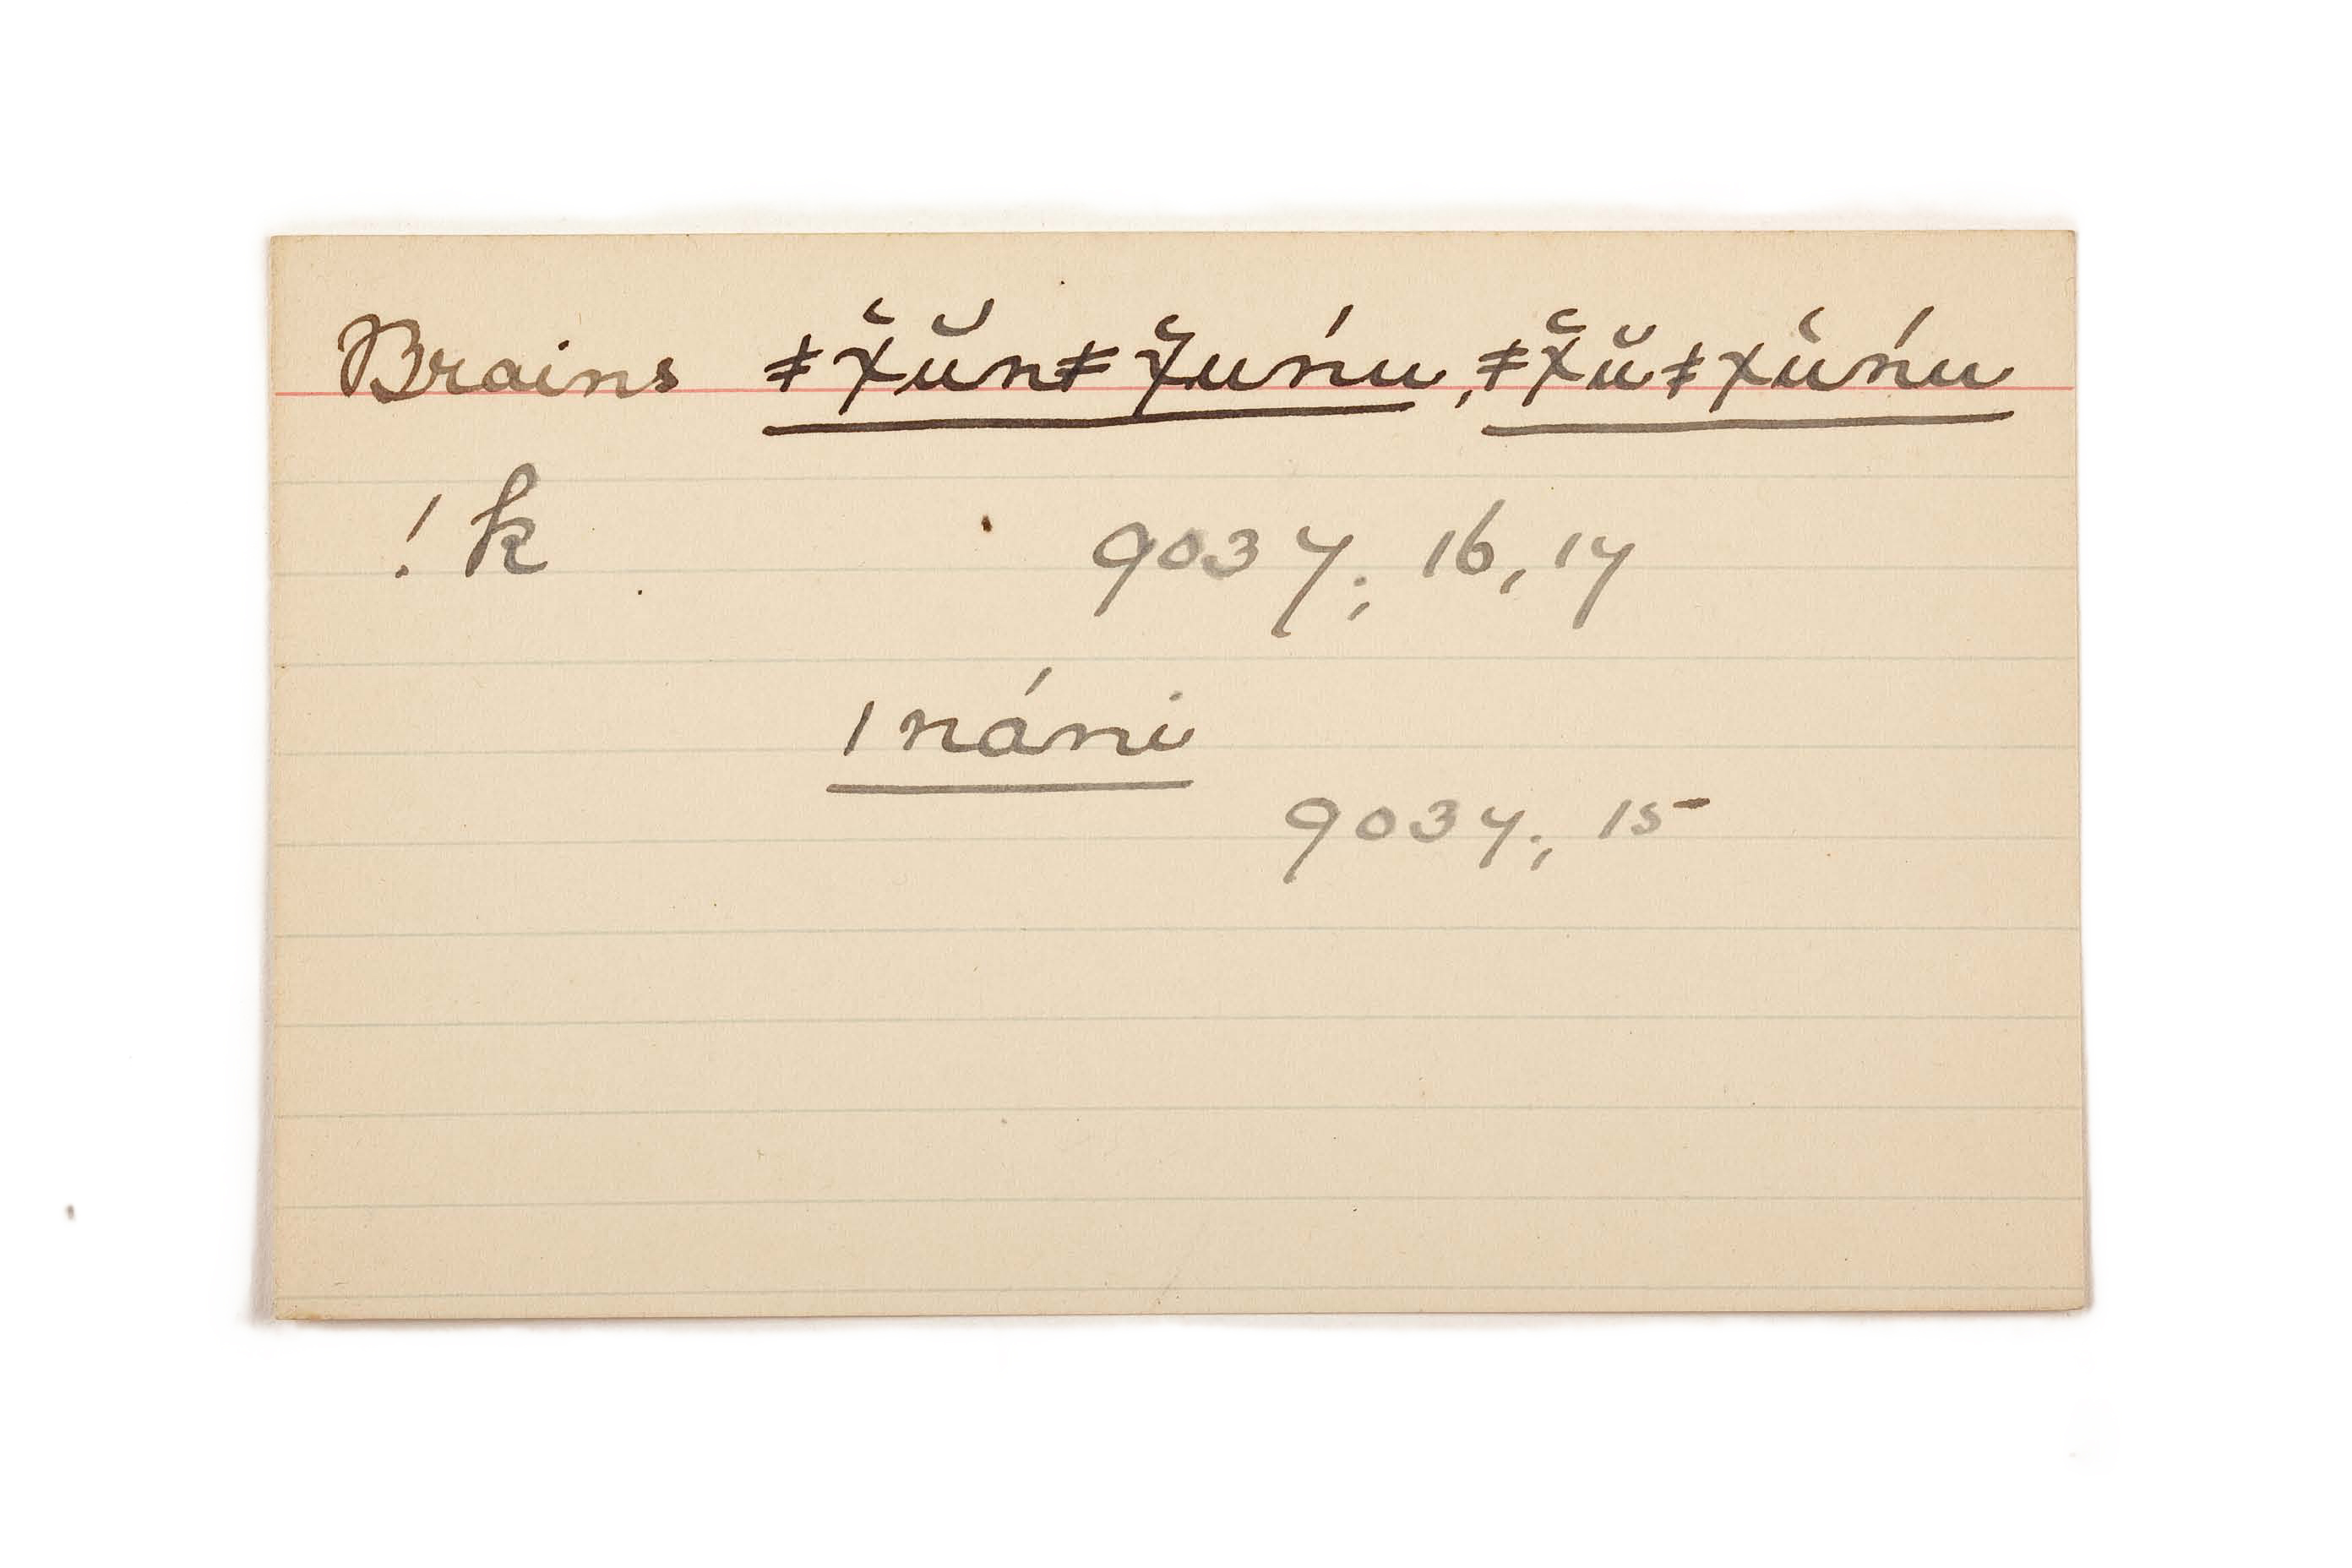 Brains ǂχ̆ŭnǂχ̆uńu, ǂχ̆ŭǂχ̆uńu
!k 9037; 16, 17
ǀnáni
9037; 15